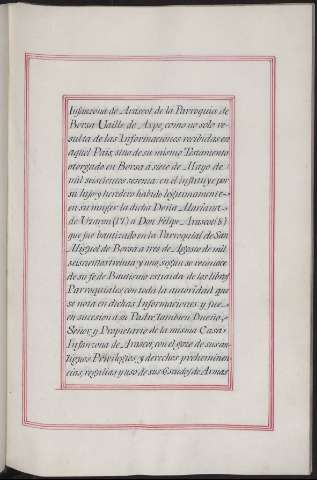 Infanzona de Arascot de la Parroquia de
Berza Vaille, de Axpe, como no solo re-
sulta de las Informaciones recibidas en
aquel Pais, sino de su mismo Testamento
otorgado en Berza á siete de Mayo de
mil seiscientos sesenta: en él instituye por
su hijo y heredero habido legitimamente
en su muger la dicha Doña Mariana
de Uzarin (17.) á Don Felipe Arascot (8.)
que fue bautizado en la Parroquial de San
Miguel de Berza á tres de Agosto de mil
seiscientos treinta y uno, según se reconoce
de su fe de Bautismo extraida de los libros
Parroquiales con toda la autoridad que
se nota en dichas Informaciones y fue
en sucesion á su Padre tambien Dueño,
Señor, y Propietario de la misma Casa
Infanzona de Arascot, con el goze de sus an-
tiguos Privilegios, y derechos preheminen-
cias, regalias, y uso de sus Escudos de Armas